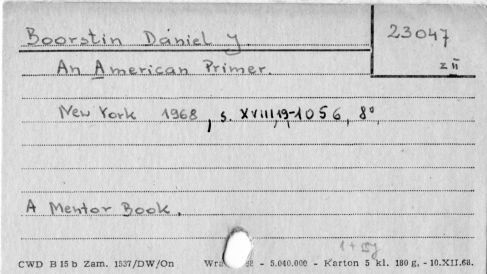 Boorstin Daniel J.
23047
z II
An American Primer.
New York 1968, s. XVIII,19-1056, 8°
A Mentor Book.
CWD B 15 b Zam. 1537/DW/On - 5.040.000 - Karton 5 kl. 180 g. - 10.XII.68.